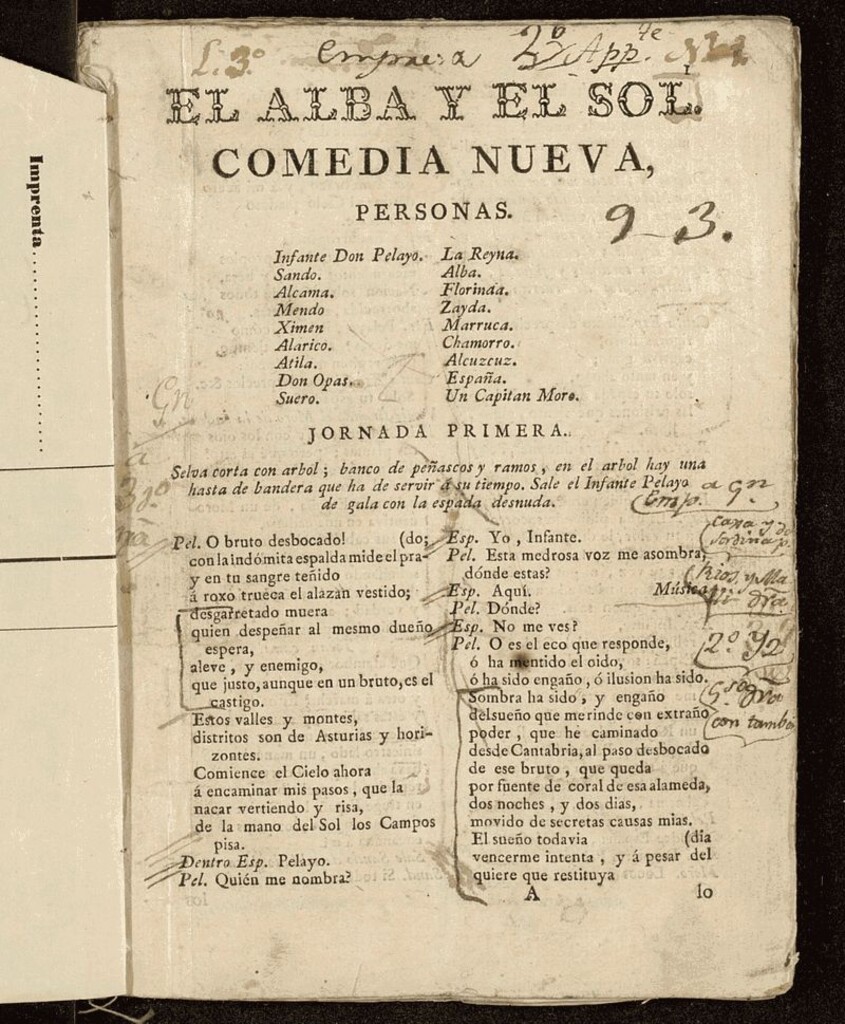 Imprenta
L. 3.º
Empieza 2º Appte
EL ALBA Y EL SOL.
COMEDIA NUEVA,
PERSONAS.
9-3.
Infante Don Pelayo.
Sando.
Alcama.
Mendo
Ximen
Alarico.
Atila.
Don Opas.
Suero.
La Reyna.
Alba.
Florinda.
Zayda.
Marruca.
Chamorro.
Alcuzcuz.
España.
Un Capitan Moro.
JORNADA PRIMERA.
Selva corta con arbol; banco de peñascos y ramos, en el arbol hay una
hasta de bandera que ha de servir á su tiempo. Sale el Infante Pelayo
de gala con la espada desnuda.
Pel. O bruto desbocado! (do;
con la indómita espalda mide el pra-
y en tu sangre teñido
á roxo trueca el alazan vestido;
desgarretado muera
quien despeñar al mesmo dueño
espera,
aleve, y enemigo,
que justo, aunque en un bruto, es el
castigo.
Estos valles y montes,
distritos son de Asturias y hori-
zontes.
Comience el Cielo ahora
á encaminar mis pasos, que la
nacar vertiendo y risa,
de la mano del Sol los Campos
pisa.
Dentro Esp. Pelayo.
Pel. Quién me nombra?
Esp. Yo, Infante.
Pel. Esta medrosa voz me asombra,
dónde estas?
Esp. Aquí. Música
Pel. Dónde?
Esp. No me ves?
Pel. O es el eco que responde,
ó ha mentido el oido,
ó ha sido engaño, ó ilusion ha sido.
Sombra ha sido, y engaño
delsueño que merinde con extraño
poder, que he caminado
desde Cantabria, al paso desbocado
de ese bruto, que queda
por fuente de coral de esa alameda,
dos noches, y dos dias,
movido de secretas causas mias.
El sueño todavia (dia
vencerme intenta, y á pesar del
quiere que restituya
A lo
Emp.
2º y 2
con tambo